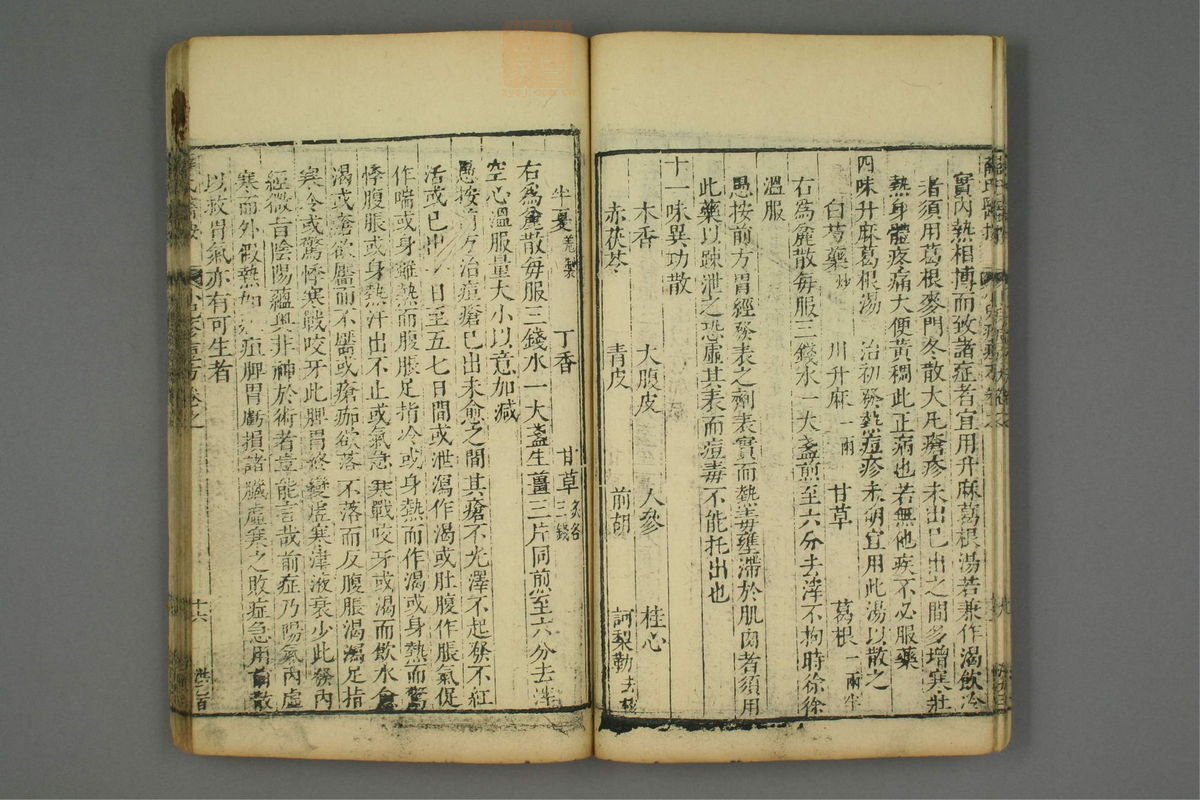 實內熱相博而致諸症者宜用升麻葛根湯若兼作渴飲冷
者須用葛根麥門冬散大凡瘡疹未出已出之間多增寒壯
熱身體疼痛大便黃稠此正病也若無他疾不必服藥
四味升麻葛根湯 治初發熱痘疹未明宜用此湯以散之
白芍藥炒 川升麻一兩 甘草 葛根一兩半
右為麄散每服三錢水一大盞煎至六分去滓不拘時徐徐
溫服
愚按前方胃經發表之劑表實而熱毒壅滯於肌肉者須用
此藥以疎泄之恐虛其表而痘毒不能托出也
十一味異功散
木香 大腹皮 人參 桂心
赤茯苓 青皮 前胡 訶梨勒去核
半夏姜製 丁香 甘草炙各三錢
右為麄散每服三錢水一大盞生薑三片同煎至六分去滓
空心溫服量大小以意加減
愚按前方治痘瘡已出未愈之間其瘡不光澤不起發不紅
活或已出一日至五七日間或泄瀉作渴或肚腹作脹氣促
作喘或身雖熱而腹脹足指冷或身熱而作渴或身熱而驚
悸腹脹或身熱汗出不止或氣急寒戰咬牙或渴而飲水
渴或瘡欲靨而不靨或瘡痂欲落不落而反腹脹渴瀉足指
寒冷或驚悸寒戰咬牙此脾胃終變虛寒津液衰少此發內
經微旨陰陽蘊奧非神於術者豈能言哉前症乃陽氣內虛
寒而外假熱如 疽脾胃虧損諸臟虛寒之敗症急用前散
以救胃氣亦有可生者
十六